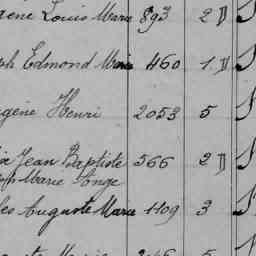 gène Louis Marie 893 2 D
ph Edmond Marie 460 1 D
gène Henri 2053 5
Jean Baptiste 566 2 D
Marie Ange
les Auguste Marie 1109 3